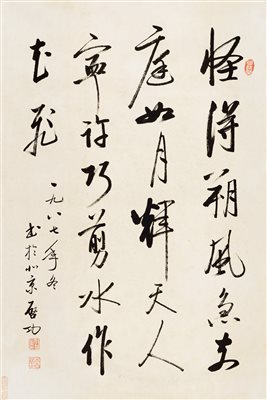 怪得朔風急前
庭如月輝天人
寧許巧剪水作
花飛
一九八七年冬
書於北京 启功